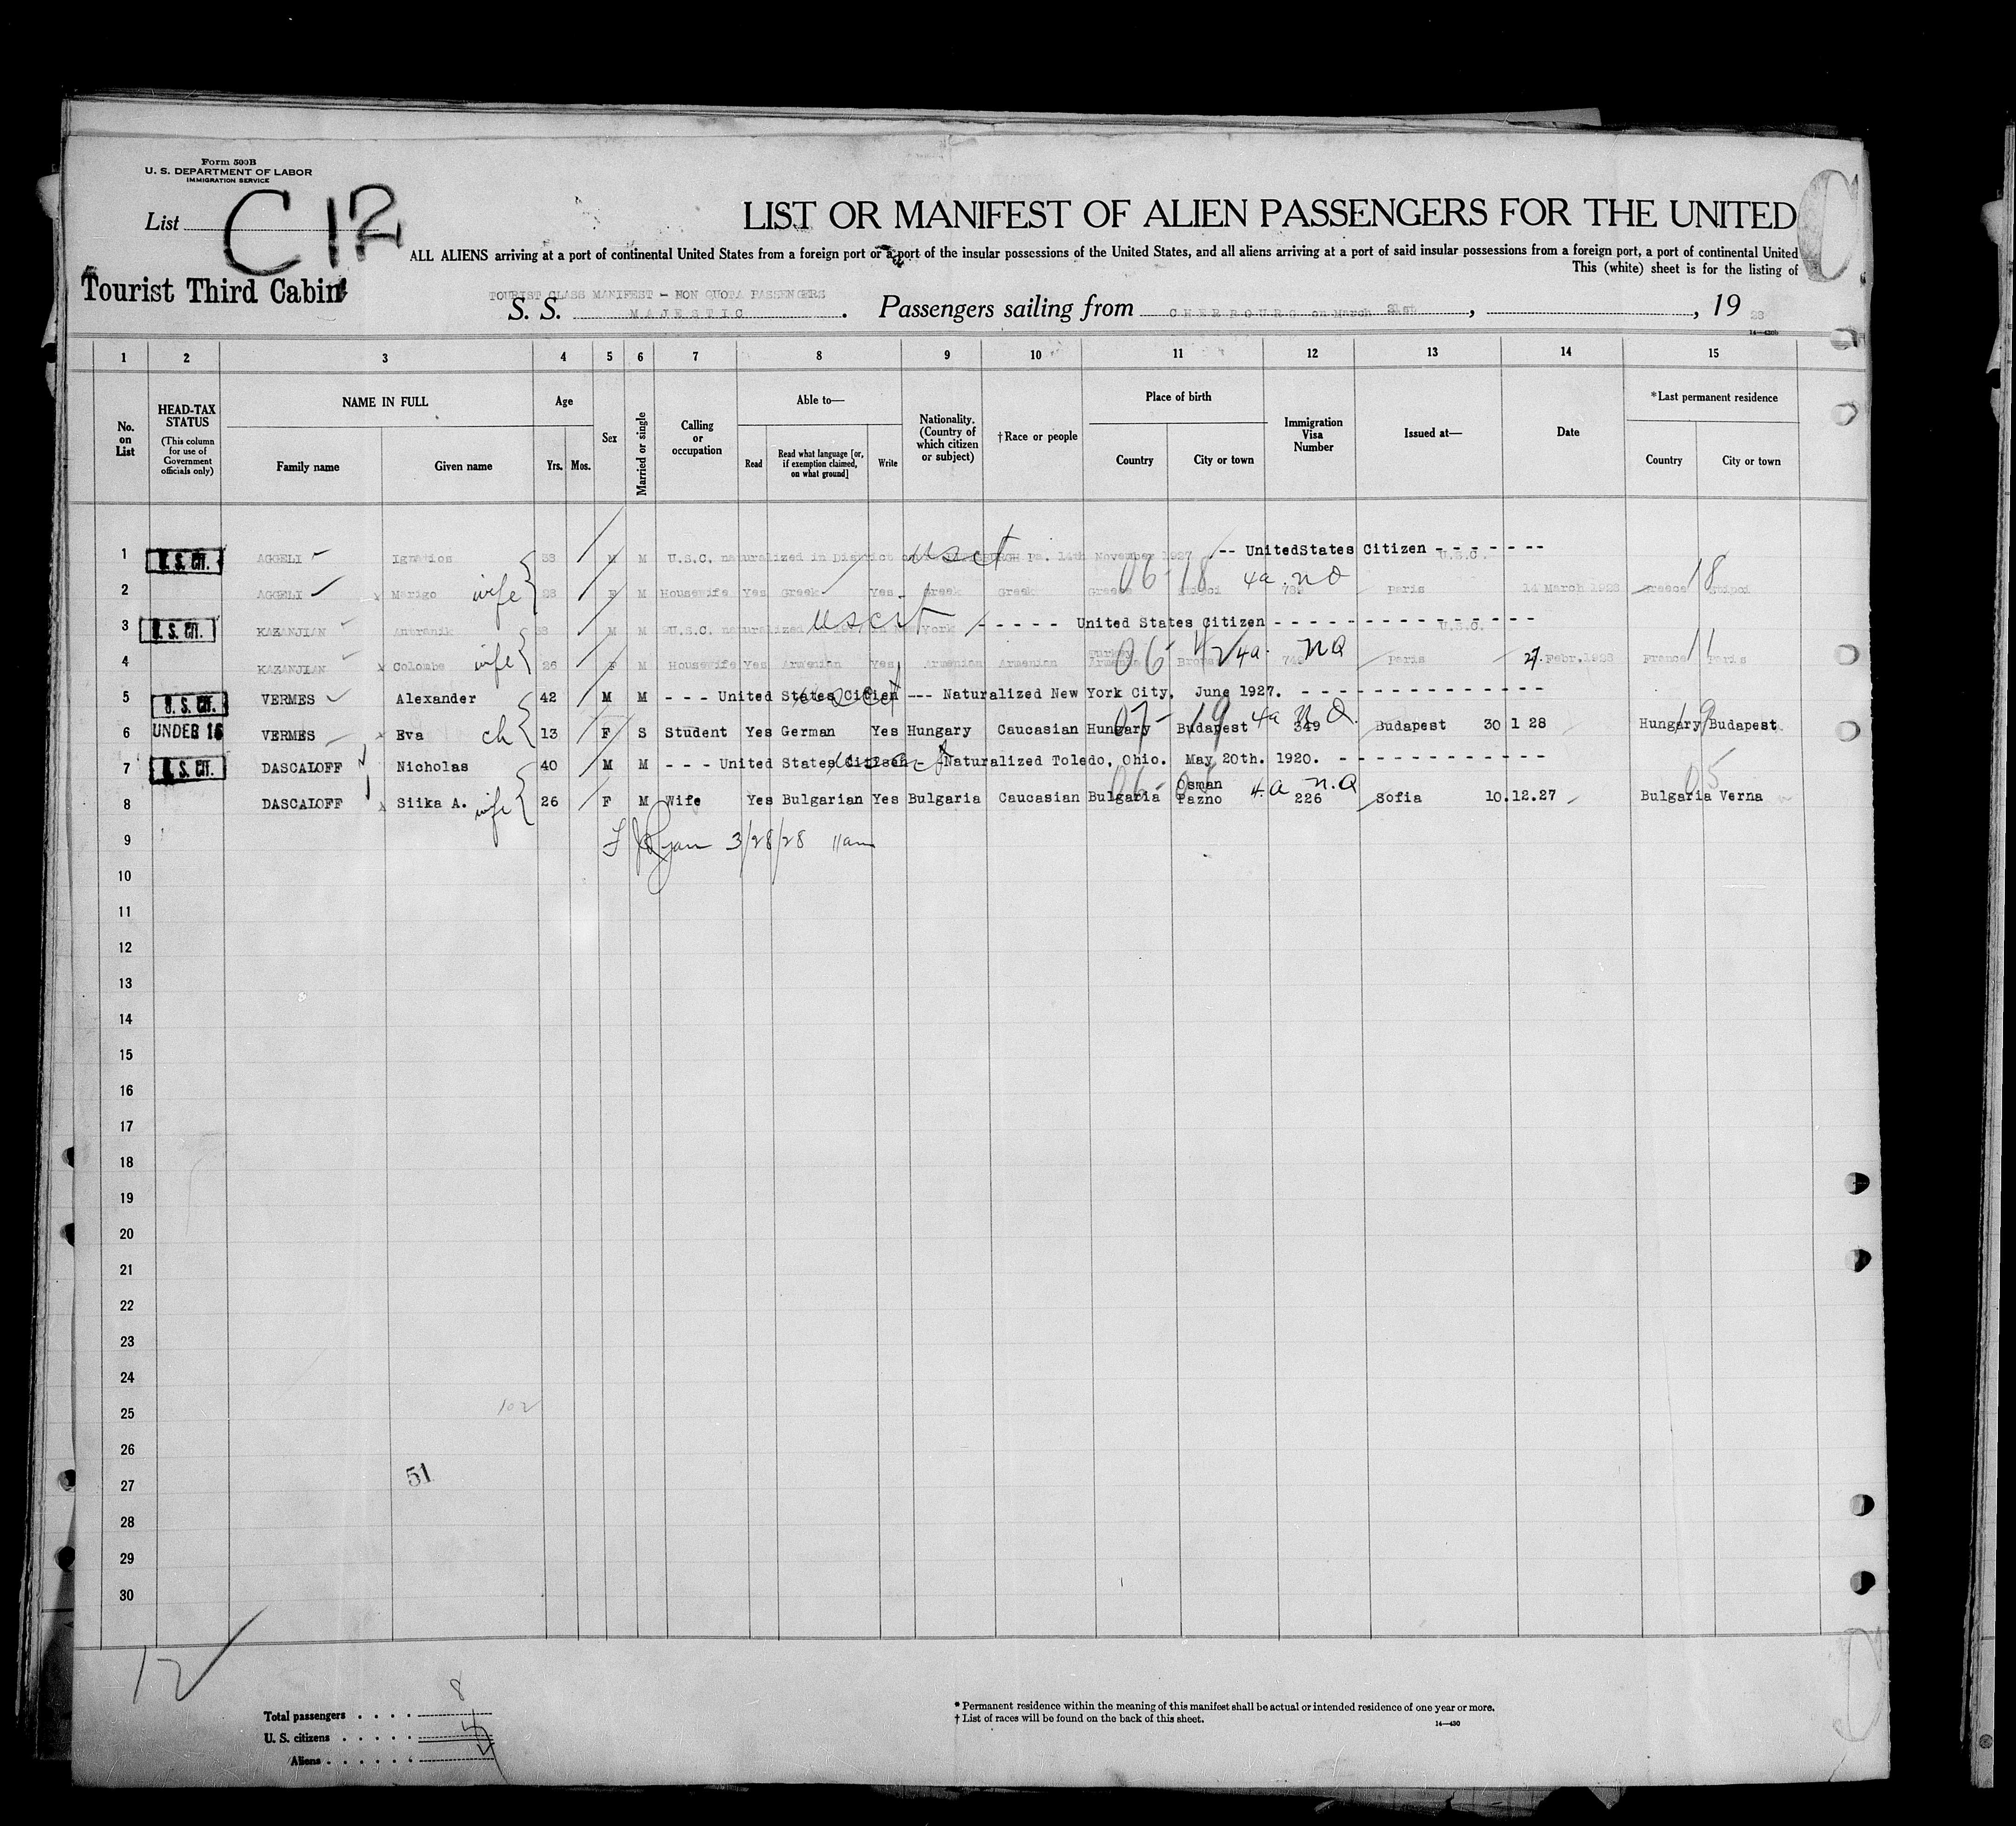 Form 500B
U. S. DEPARTMENT OF LABOR
IMMIGRATION SERVICE
List C 12
LIST OR MANIFEST OF ALIEN PASSENGERS FOR THE UNITED
ALL ALIENS arriving at a port of continental United States from a foreign port or a port of the insular possessions of the United States, and all aliens arriving at a port of said insular possessions from a foreign port, a port of continental United
This (white) sheet is for the listing of
Tourist Third Cabin
TOURIST CLASS MANIFEST - NON QUOTA PASSENGERS
S. S. MAJESTIC. Passengers sailing from CHERBOURG on March 21st, , 19 28
14—430b
1 2 3 4 5 6 7 8 9 10 11 12 13 14 15
No. on List
HEAD-TAX STATUS (This column for use of Government officials only)
NAME IN FULL
Family name Given name
Age
Yrs. Mos.
Sex
Married or single
Calling or occupation
Able to—
Read
Read what language [or, if exemption claimed, on what ground]
Write
Nationality. (Country of which citizen or subject)
†Race or people
Place of birth
Country City or town
Immigration Visa Number
Issued at—
Date
*Last permanent residence
Country City or town
1 U. S. CIT. AGGELI Ignatios 38 M M U.S.C. naturalized in District PITTSBURGH Pa. 14th November 1927 -- UnitedStates Citizen - - - - - - - U.S.C.
usct
06-18 4a. NQ 18
2 AGGELI x Marigo wife 28 F M Housewife Yes Greek Yes Greek Greek Greece Paris 14 March 1928 Greece
uscit
3 U. S. CIT. KAZANJIAN Antranik 38 M M U.S.C. naturalized York - - - - - United States Citizen - - - - - - - - - - - - - - U.S.C.
Turkey
06- 42 4a. NQ 11
4 KAZANJIAN x Colombe wife 26 F M Housewife Yes Armenian Yes Armenian Armenian Armenia Paris 27. Febr. 1928 France Paris
5 U. S. CIT. VERMES Alexander 42 M M - - - United States Citien --- Naturalized New York City, June 1927. - - - - - - - - - - - - - -
07- 19 4a N.Q. 19
6 UNDER 16 VERMES x Eva ch 13 F S Student Yes German Yes Hungary Caucasian Hungary Budapest 349 Budapest 30 1 28 Hungary Budapest
7 U. S. CIT. DASCALOFF Nicholas 40 M M - - - United States Citizen - Naturalized Toledo, Ohio. May 20th. 1920. - - - - - - - - - - - -
Osman
4.a n.Q 05
8 DASCALOFF x Siika A. wife 26 F M Wife Yes Bulgarian Yes Bulgaria Caucasian Bulgaria Pazno 226 Sofia 10.12.27 Bulgaria Verna
9 Ryan 3/28/28 11am
10
11
12
13
14
15
16
17
18
19
20
21
22
23
24
102
25
26
51
27
28
29
30
12
8
Total passengers . . . .
U. S. citizens . . . . . 4
Aliens . . . . . .
* Permanent residence within the meaning of this manifest shall be actual or intended residence of one year or more.
† List of races will be found on the back of this sheet.
14—430